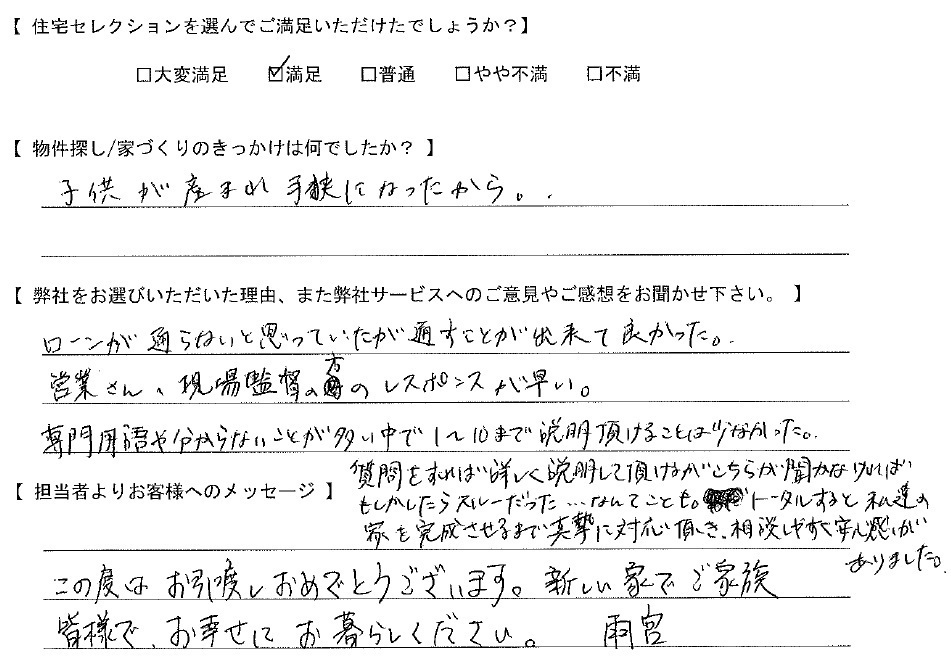 【 住宅セレクションを選んでご満足いただけたでしょうか?】
□大変満足 ☑満足 □普通 □やや不満 □不満
【 物件探し/家づくりのきっかけは何でしたか? 】
子供が産まれ手狭になったから。
【 弊社をお選びいただいた理由、また弊社サービスへのご意見やご感想をお聞かせ下さい。 】
ローンが通らないと思っていたが通すことが出来て良かった。
営業さん、現場監督の方のレスポンスが早い。
専門用語や分からないことが多い中で1〜10まで説明頂けることは少なかった。
質問をすれば詳しく説明して頂けるがこちらが聞かなければ
もしかしたらスルーだった…なんてことも。トータルすると私達の
家を完成させるまで真摯に対応頂き、相談しやすく安心感が
ありました。
【 担当者よりお客様へのメッセージ 】
この度はお引渡しおめでとうございます。新しい家でご家族
皆様で、お幸せにお暮らしください。 雨宮